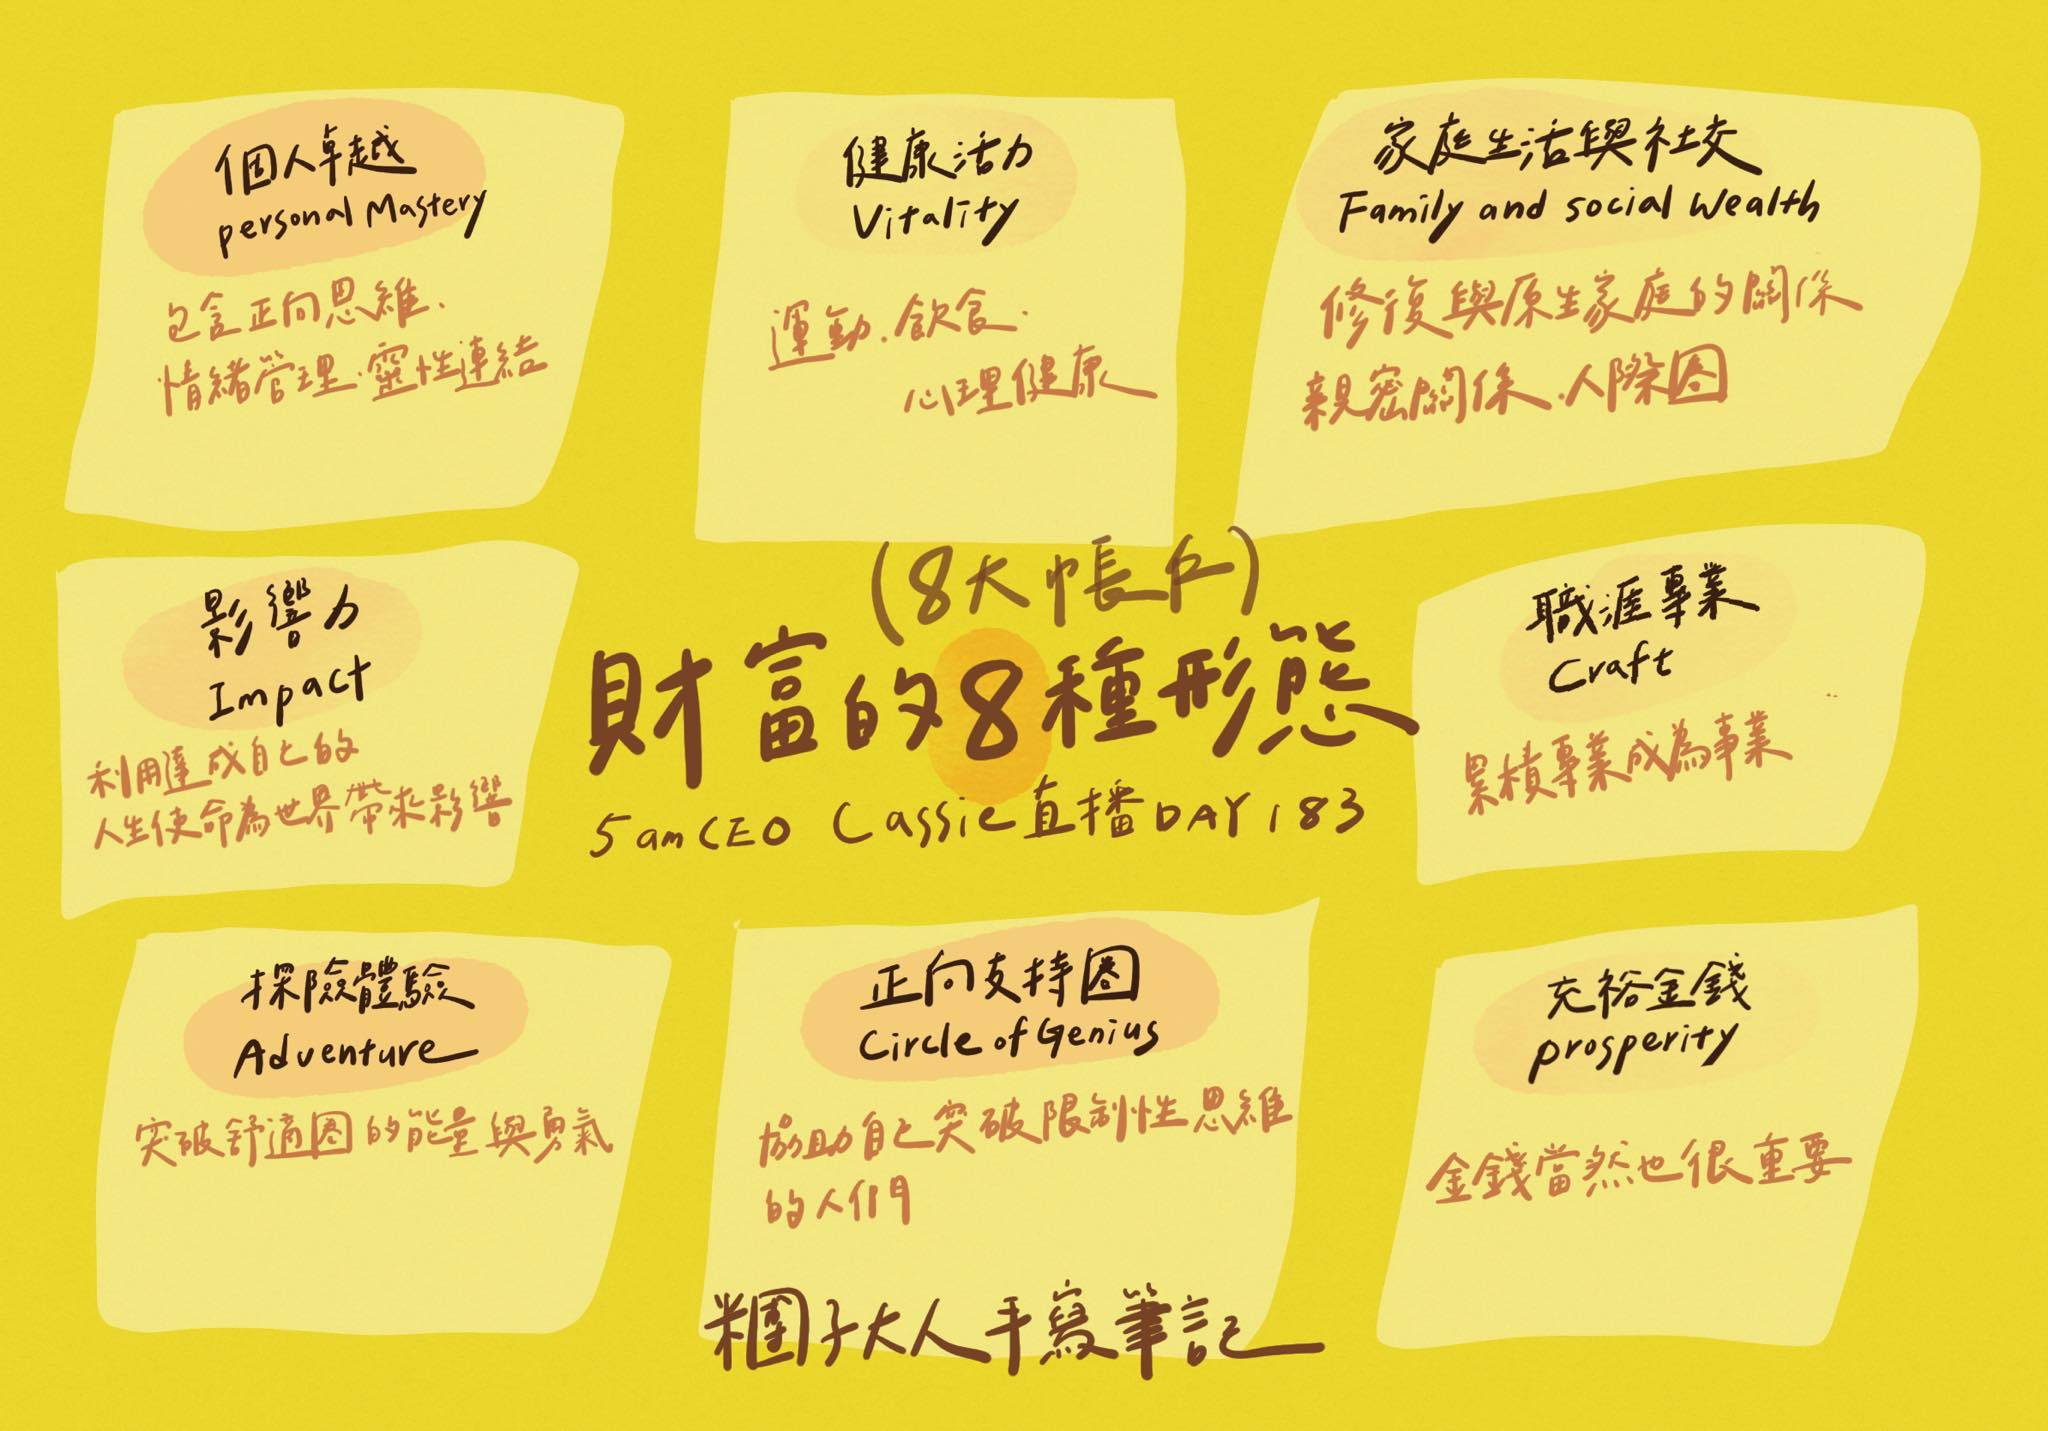 個人卓越
personal Mastery
包含正向思維.
情緒管理.靈性連結
健康活力
Vitality
運動.飲食.
心理健康
家庭生活與社交
Family and social Wealth
修復與原生家庭的關係
親密關係.人際圈
(8大帳戶)
財富的8種形態
5amCEO Cassie直播DAY183
影響力
Impact
利用達成自己的
人生使命為世界帶來影響
職涯專業
Craft
累積專業成為事業
探險體驗
Adventure
突破舒適圈的能量與勇氣
正向支持圈
Circle of Genius
協助自己突破限制性思維
的人們
充裕金錢
prosperity
金錢當然也很重要
糰子大人手寫筆記